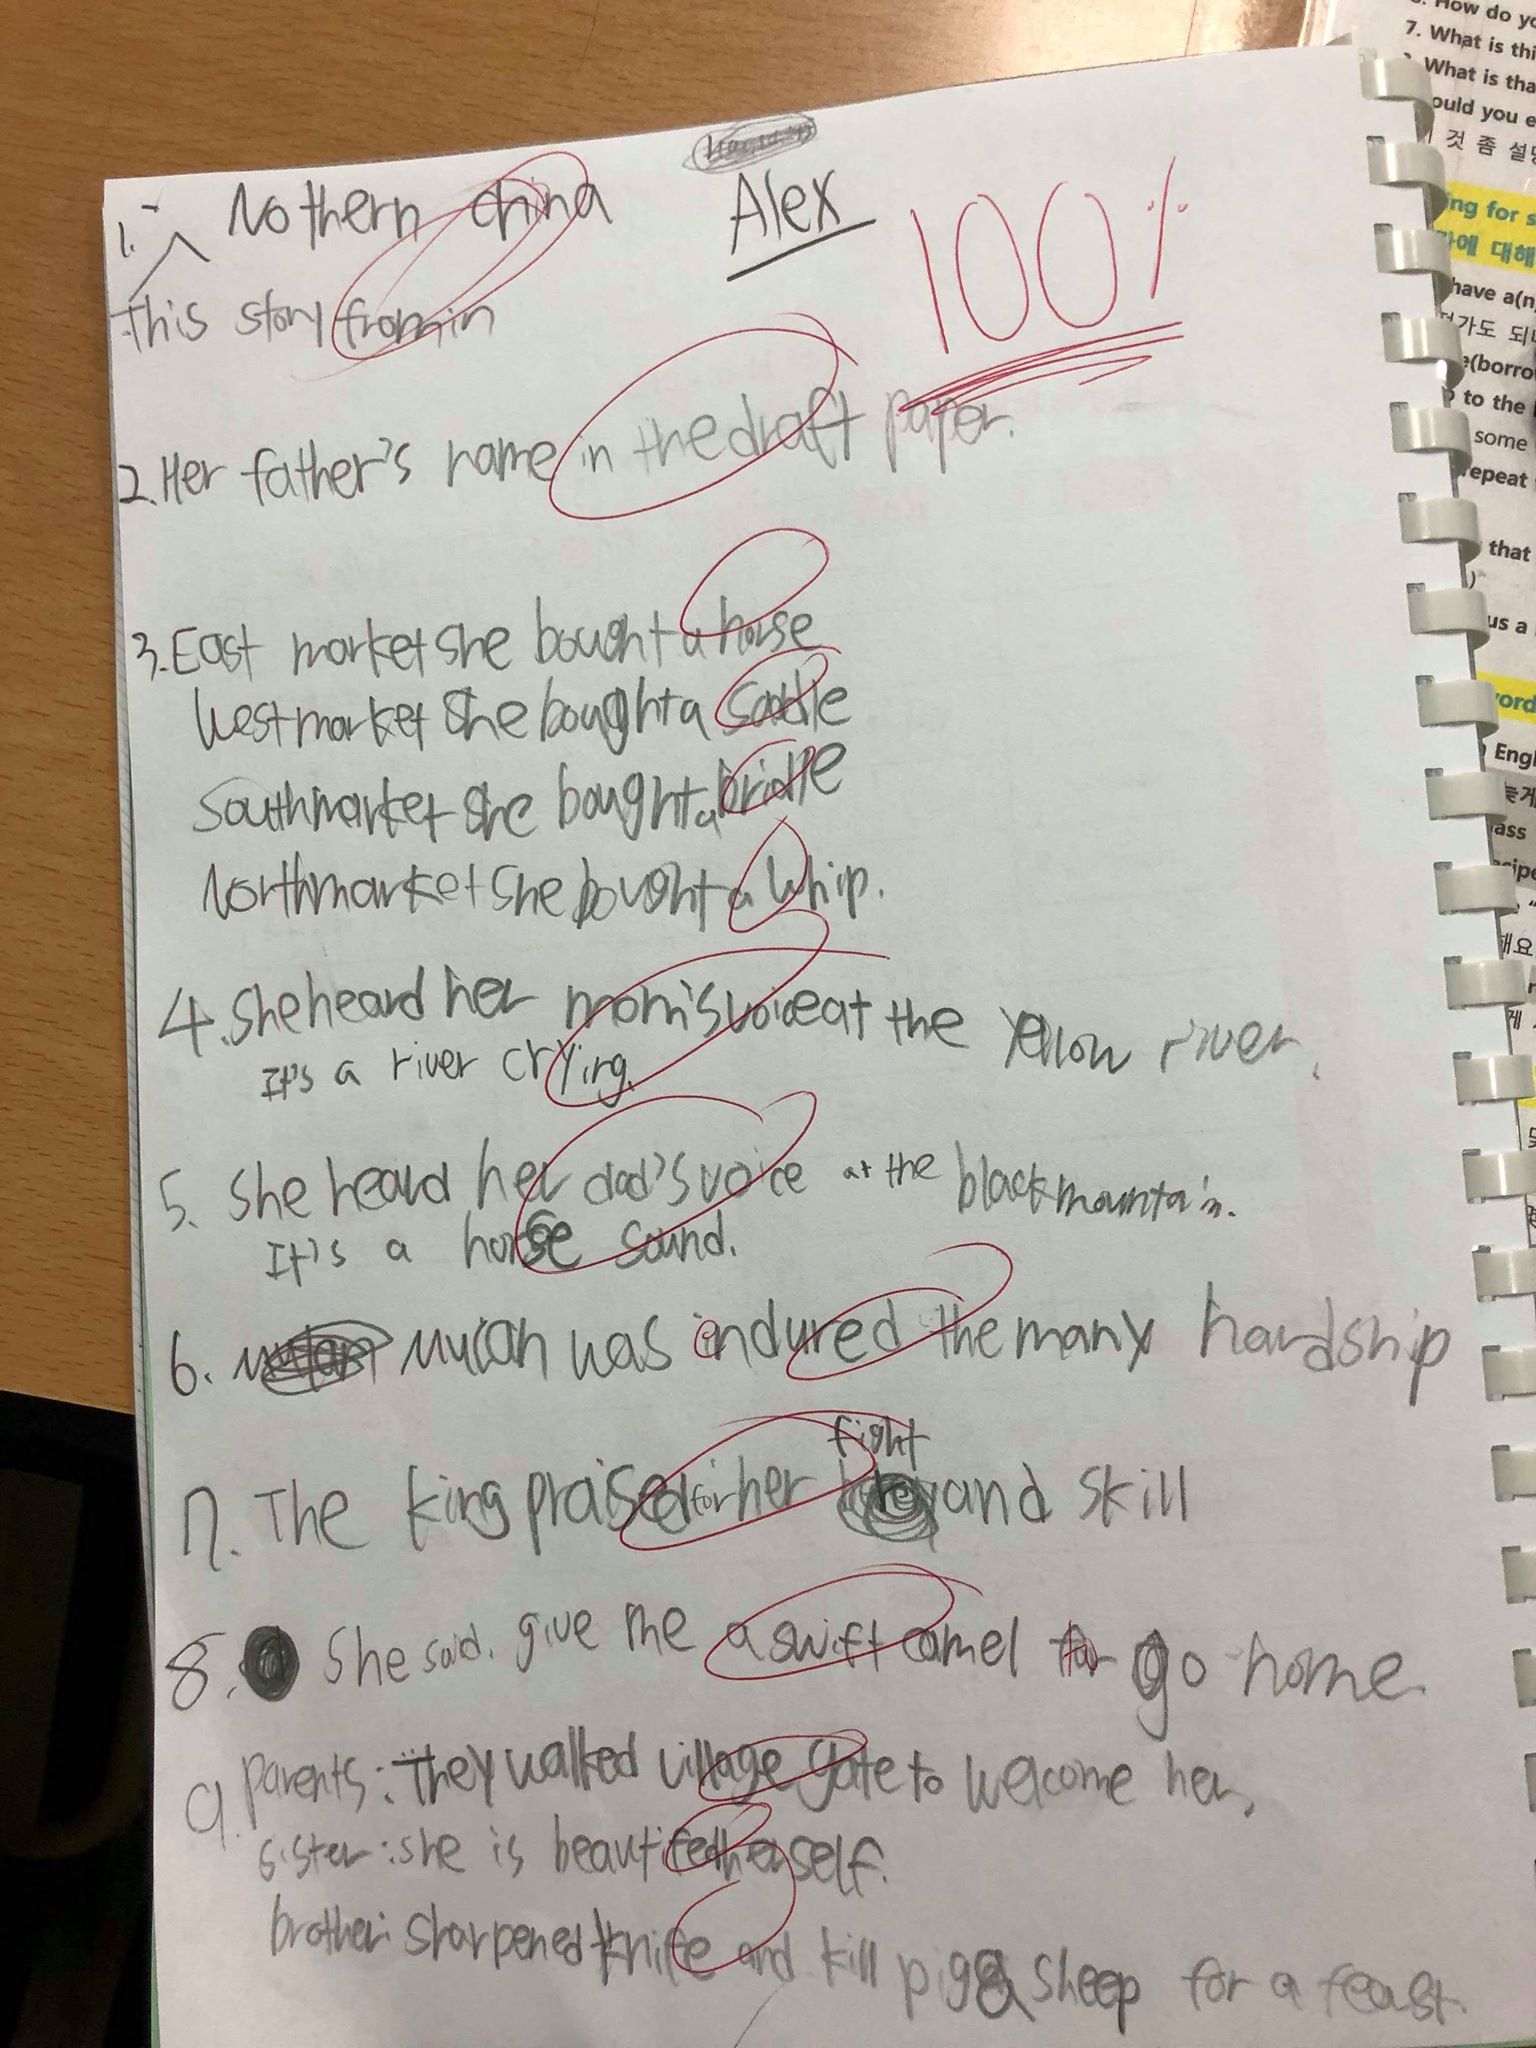 1. Nothern china
Alex
100%
This story from in
2. Her father's name in the draft paper.
3. East market she bought a horse
West market she bought a saddle
South market she bought a bridle
North market she bought a whip.
4. She heard her mom's voice at the Yellow river.
It's a river crying.
5. She heard her dad's voice at the black mountain.
It's a horse sound.
6. Mulan was endured the many hardship
7. The king praised for her fight and skill
8. She said, give me a swift camel for go home.
9. parents: They walked village gate to welcome her.
sister: she is beautifed herself.
brother: sharpened knife and kill pig & sheep for a feast.
How do yo
7. What is thi
What is tha
ould you e
것 좀 설명
ing for s
에 대해
have a(n
가도 되
e(borro
to the
some
repeat
that
us a
ord
Engl
ass